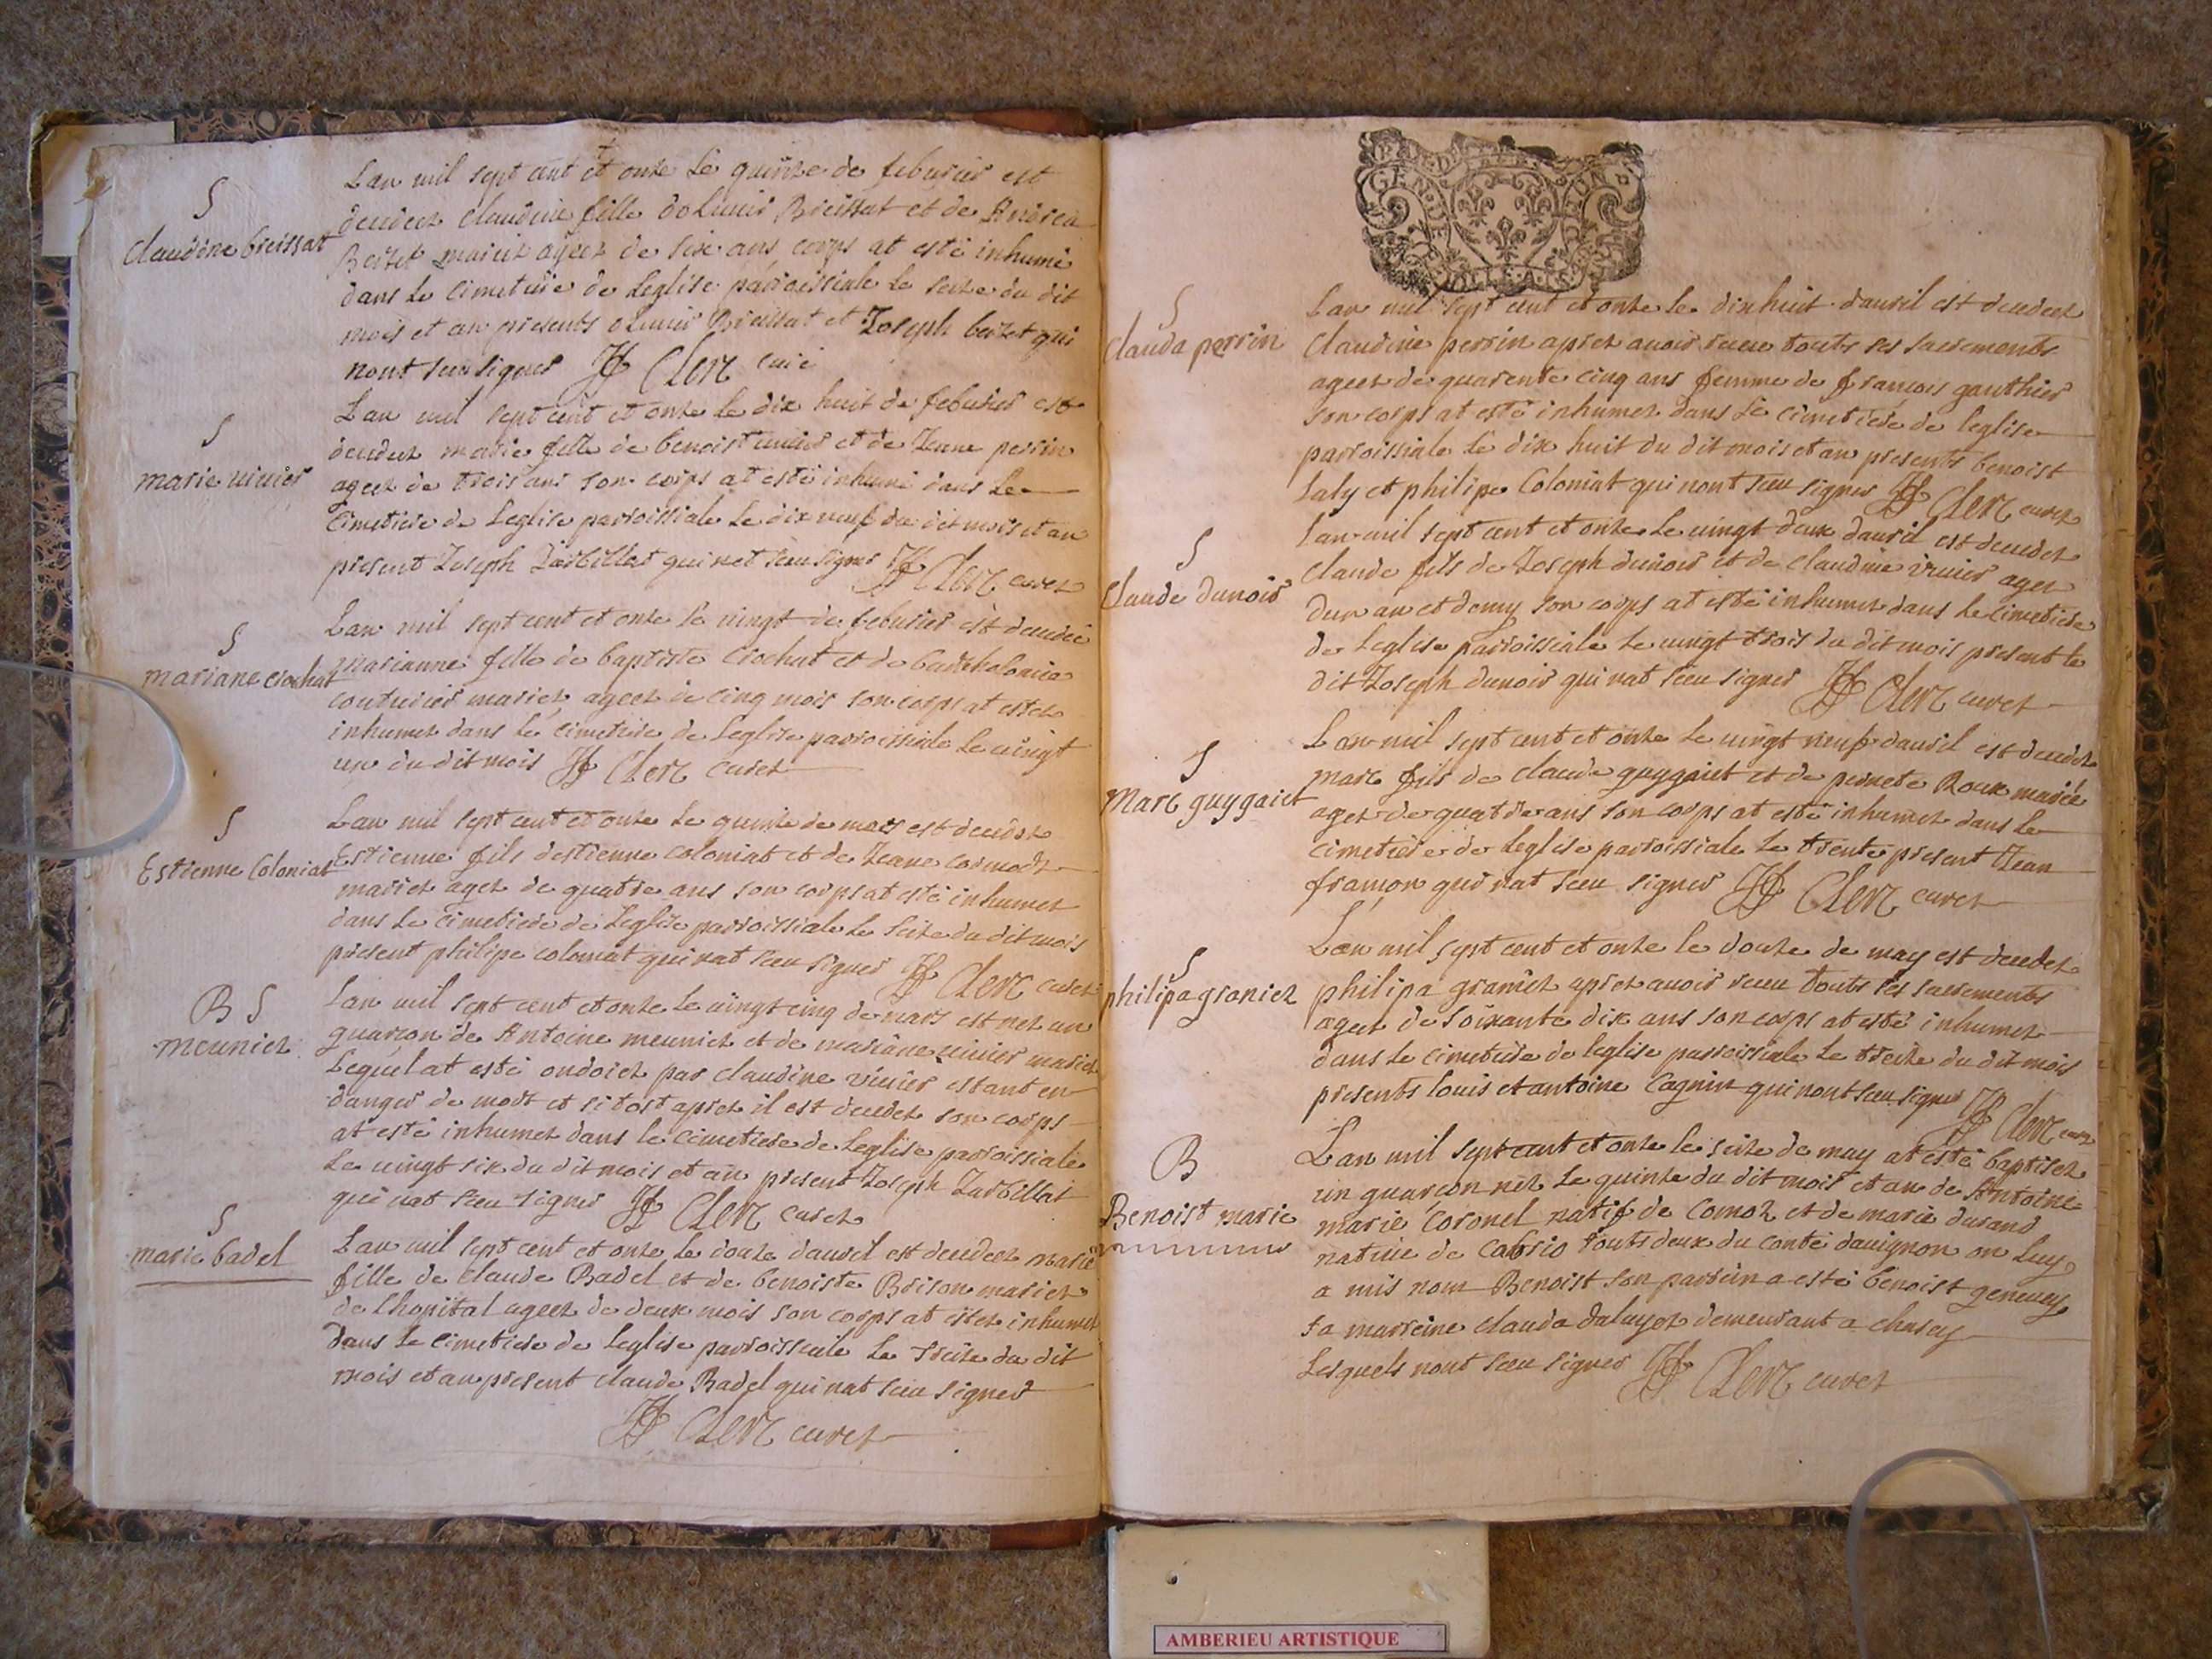 S
Claudine breissat
Lan mil sept cent et onze le quinze de feburier est
decedeez Claudine fille Breissat et de Andrea
Berzet mariez ageez de six ans corps at esté inhumé
dans le cimetiere de Leglise parroissiale le seize du dit
mois et an presents Breissat et Zoseph berzet qui
nont sceu signer Clerc curé
S
marie uiuier
Lan mil sept cent et onze le dix huit de feburier est
decedeez marie fille de benoist uiuier et de Zanne perrin
ageez de trois ans son corps at esté inhumé dans le
Cimetiere de Leglise parroissiale le dix neuf du dit mois et an
present Zoseph Zarbillat qui nat sceu signer Clerc curez
S
mariane crochat
Lan mil sept cent et onze le uingt de feburier est decedée
Marianne fille de baptiste Crochat et de bartholomie
couturier mariez ageez de cinq mois son corps at estez
inhumez dans le cimetiere de Leglise parroissiale le uingt
un du dit mois Clerc curez
S
Estienne Coloniat
Lan mil sept cent et onze le quinze de mars est decedez
Estienne fils destienne coloniat et de Zeane cormoz
mariez agez de quatre ans son corps at esté inhumez
dans le cimetiere de Leglise parroissiale le seize du dit mois
present philipe coloniat qui nat sceu signer Clerc curez
B S
meuniez
Lan mil sept cent et onze le uingt cinq de mars est nez un
guarcon de Antoine meuniez et de mariane uiuier mariez
Lequel at esté ondoiez par claudine viuier estant en
danger de mort et si tost aprez il est decedez son corps
at esté inhumez dans le cimetiere de Leglise parroissiale
Le uingt six du dit mois et an present Zoseph Zarbillat
qui nat sceu signer Clerc curez
S
marie badel
Lan mil sept cent et onze le douze dauril est decedeez marie
fille de claude Badel et de benoiste Brison mariez
de Lhopital ageez de deux mois son corps at estez inhumez
dans le cimetiere de Leglise parroissiale le treize du dit
mois et an present claude Badel qui nat sceu signer
Clerc curez
GEN DE
S
Clauda perrin
Lan mil sept cent et onze le dixhuit dauril est decedeez
Claudine perrin aprez auoir receu touts ses sacrements
ageez de quarente cinq ans femme de francois gauthier
son corps at esté inhumez dans le cimetiere de leglise
parroissiale le dix huit du dit mois et an presents benoist
Laly et philipe Coloniat qui nont sceu signer Clerc curez
S
Claude dunoir
Lan mil sept cent et onze le uingt deux dauril est decedez
Claude fils de Zoseph dunoir et de claudine viuier agez
dun an et demy son corps at esté inhumez dans le cimetiere
de Leglise parroissiale le uingt trois du dit mois present le
dit Zoseph dunoir qui nat sceu signer Clerc curez
S
Marc guygaict
Lan mil sept cent et onze le uingt neuf dauril est decedez
marc fils de claude guygaict et de pernete Roux mariée
agez de quatre ans son corps at esté inhumez dans le
cimetiere de Leglise parroissiale le trente present Zean
framon qui nat sceu signer Clerc curez
S
philipa graniez
Lan mil sept cent et onze le douze de may est decedez
philipa graniez aprez auoir receu touts ses sacrements
ageez de soixante dix ans son corps at esté inhumez
dans le cimetiere de leglise parroissiale le treize du dit mois
presents louis et antoine Cagnin qui nont sceu signer Clerc curez
B
Benoist marie
Lan mil sept cent et onze le seize de may at esté baptisez
un guarcon nez le quinze du dit mois et an de Antoine
marie Coronel natif de Comoz et de marie durand
natiue de Cabrio touts deux du conté dauignon on luy
a mis nom Benoist son parrein a esté benoist geneuey
sa marreine clauda dalayez demeurant a chasey
Lesquels nont sceu signer Clerc curez
AMBERIEU ARTISTIQUE